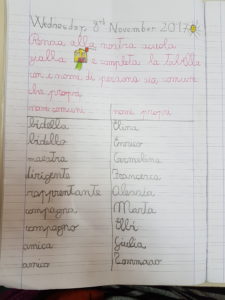 Wednesday 8rd November 2017
Pensa alla nostra scuola
gialla e completa la tabella
con i nomi di persona sia comuni
che propri
nomi comuni nomi propri
bidella Elena
bidello Enrico
maestra Carmelina
dirigente Francesca
rappresentante Alessia
compagna Marta
compagno Elbi
amica Giulia
amico Tommaso